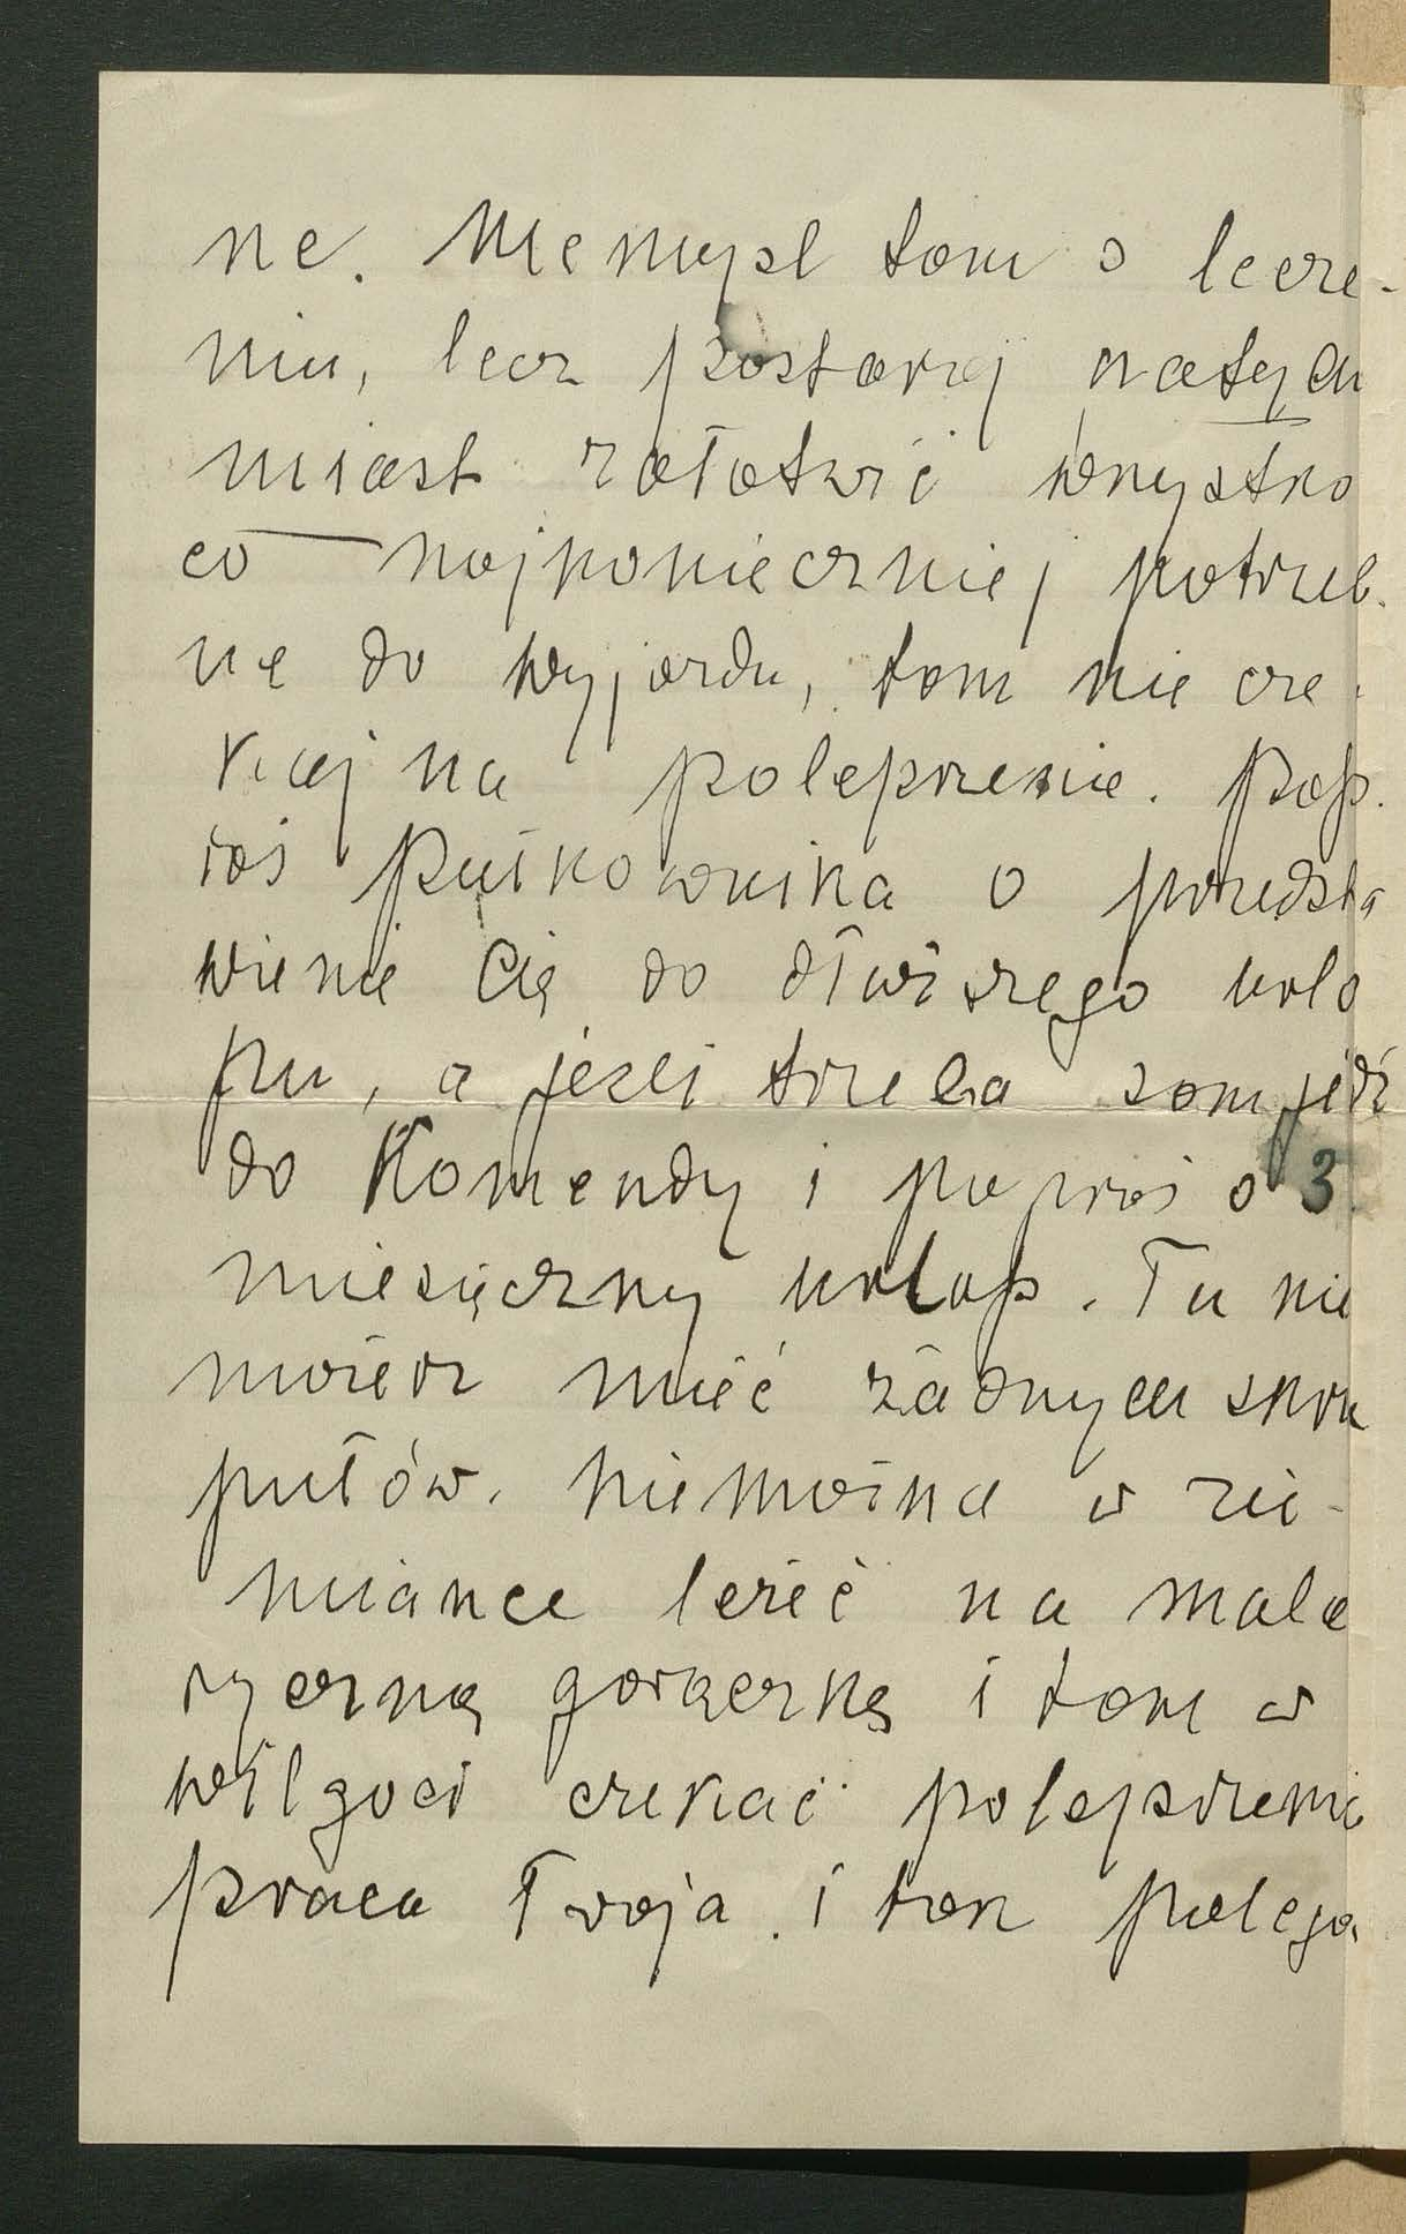 ne. Nie myśl tam o lecze-
niu, lecz postaraj natych
miast załatwić wszystko
co najkonieczniej potrzeb-
ne do wyjazdu, tam nie cze-
kaj na polepszenie. Pop-
roś pułkownika o przedsta
wienie Cię do dłuższego urlo
pu, a jeżli trzeba sam jedź
do Komendy i poproś o 3
miesięczny urlop. Tu nie
możesz mieć żadnych skru
pułów. Nie można w zie-
miance leżeć na mala
ryczną gorączkę i tam w
wilgoci czekać polepszenie
praca Twoja i tak polega